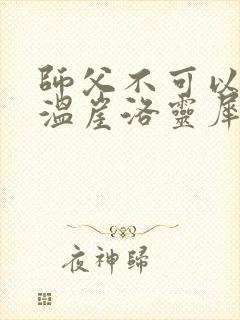 師父不可以
溫崖洛靈犀
夜神歸